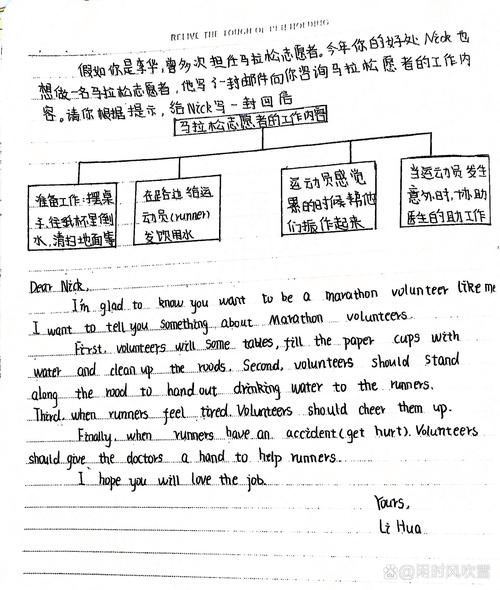 RELIVE THE TOUGH OF PEN HOLDING
假如你是李华,曾多次担任马拉松志愿者。今年你的好处Nick也
想做一名马拉松志愿者,他写了一封邮件向你咨询马拉松志愿者的工作内
容。请你根据提示,给Nick写一封回信
马拉松志愿者的工作内容
准备工作:摆桌
子,往纸杯里倒
水,清扫地面等
在路边给运
动员(runner)
发饮用水
运动员感觉
累的时候帮他
们振作起来
当运动员发生
意外时,协助
医生的助工作
Dear Nick,
I'm glad to know you want to be a marathon volunteer like me
I want to tell you something about Marathon volunteers.
First, volunteers will some tables, fill the paper cups with
water and clean up the roads. Second, volunteers should stand
along the road to hand out drinking water to the runners.
Third, when runners feel tired. Volunteers should cheer them up.
Finally, when runners have an accident(get hurt). Volunteers
should give the doctors a hand to help runners.
I hope you will love the job.
Yours,
Li Hua
@闲时风吹雪